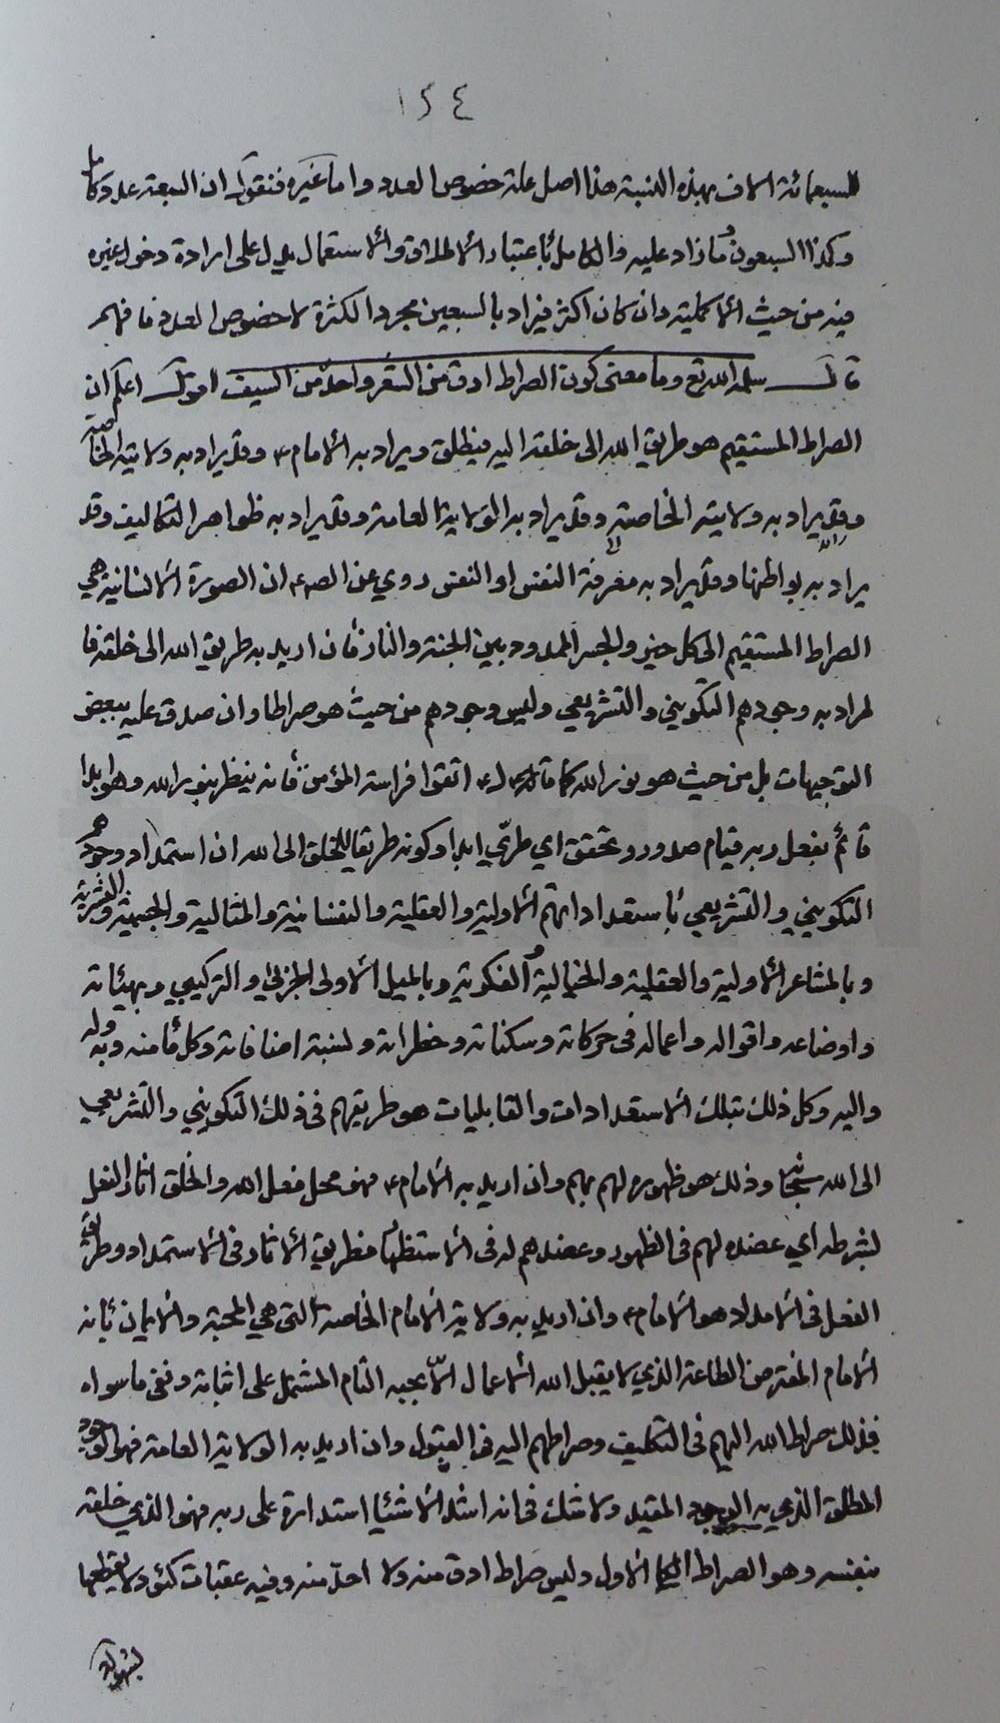 ١٢٤
السبعمائة الاف بهذه النسبة هذا اصل علة خصوص العدد واما غيره فنقول ان السبعة عدد كامل
وكذا السبعون وما زاد عليه والكامل باعتبار الاطلاق والاستعمال يدل على ارادة دخول غيره
فيه من حيث الاكملية وان كان اكثر فيراد بالسبعين مجرد الكثرة لا خصوص العدد فافهم
قال سلمه الله تع وما معنى كون الصراط ادق من الشعر واحد من السيف اقول اعلم ان
الصراط المستقيم هو طريق الله الى خلقه اليه فيطلق ويراد به الامام ع وقد يراد به ولايته الخاصة
وقد يراد به ولايته الخاصة وقد يراد به الولاية العامة وقد يراد به ظواهر التكاليف وقد
يراد به بواطنها وقد يراد به معرفة النفس او النفس روي عن الص ع ان الصورة الانسانية هي
الصراط المستقيم الى كل خير والجسر الممدود بين الجنة والنار فان اريد به طريق الله الى خلقه فا
لمراد به وجودهم التكويني والتشريعي وليس وجودهم من حيث هو صراطا وان صدق عليه ببعض
التوجيهات بل من حيث هو نور الله كما قال ع اتقوا فراسة المؤمن فانه ينظر بنور الله وهو ابدا
قائم بفعل ربه قيام صدور وتحقق اي طري ابدا وكونه طريقا للخلق الى الله ان استمداد وجودهم
التكويني والتشريعي باستعداداتهم الاولية والعقلية والنفسانية والمثالية والجسمية والبشرية
وبالمشاعر الاولية والعقلية والخيالية والفكرية وبالميل الاولى الجزئي والتركيبي وبهيئاته
واوضاعه واقواله واعماله في حركاته وسكناته وخطراته ونسبة اضافاته وكل ما منه وبه وله
واليه وكل ذلك بتلك الاستعدادات والقابليات هو طريقهم في ذلك التكويني والتشريعي
الى الله سبحانه وذلك هو ظهوره لهم بهم وان اريد به الامام ع فهو محل فعل الله والخلق اثار الفعل
بشرطه اي عضده لهم في الظهور وعضدهم له في الاستظهار فطريق الاثار في الاستمداد وطريق
الفعل في الامداد هو الامام ع وان اريد به ولاية الامام الخاصة التي هي المحبة والايمان بانه
الامام المفترض الطاعة الذي لا يقبل الله الاعمال الا بحبه التام المشتمل على اثباته ونفي ما سواه
فذلك صراط الله اليهم في التكليف وصراطهم اليه في القبول وان اريد به الولاية العامة فهو الوجود
المطلق الذي به الوجود المقيد ولا شك في انه اشد الاشياء استدارة على ربه فهو الذي خلقه
بنفسه وهو الصراط الاول وليس صراط ادق منه ولا احد منه وفيه عقبات كئود لا يقطعها
بسهولة